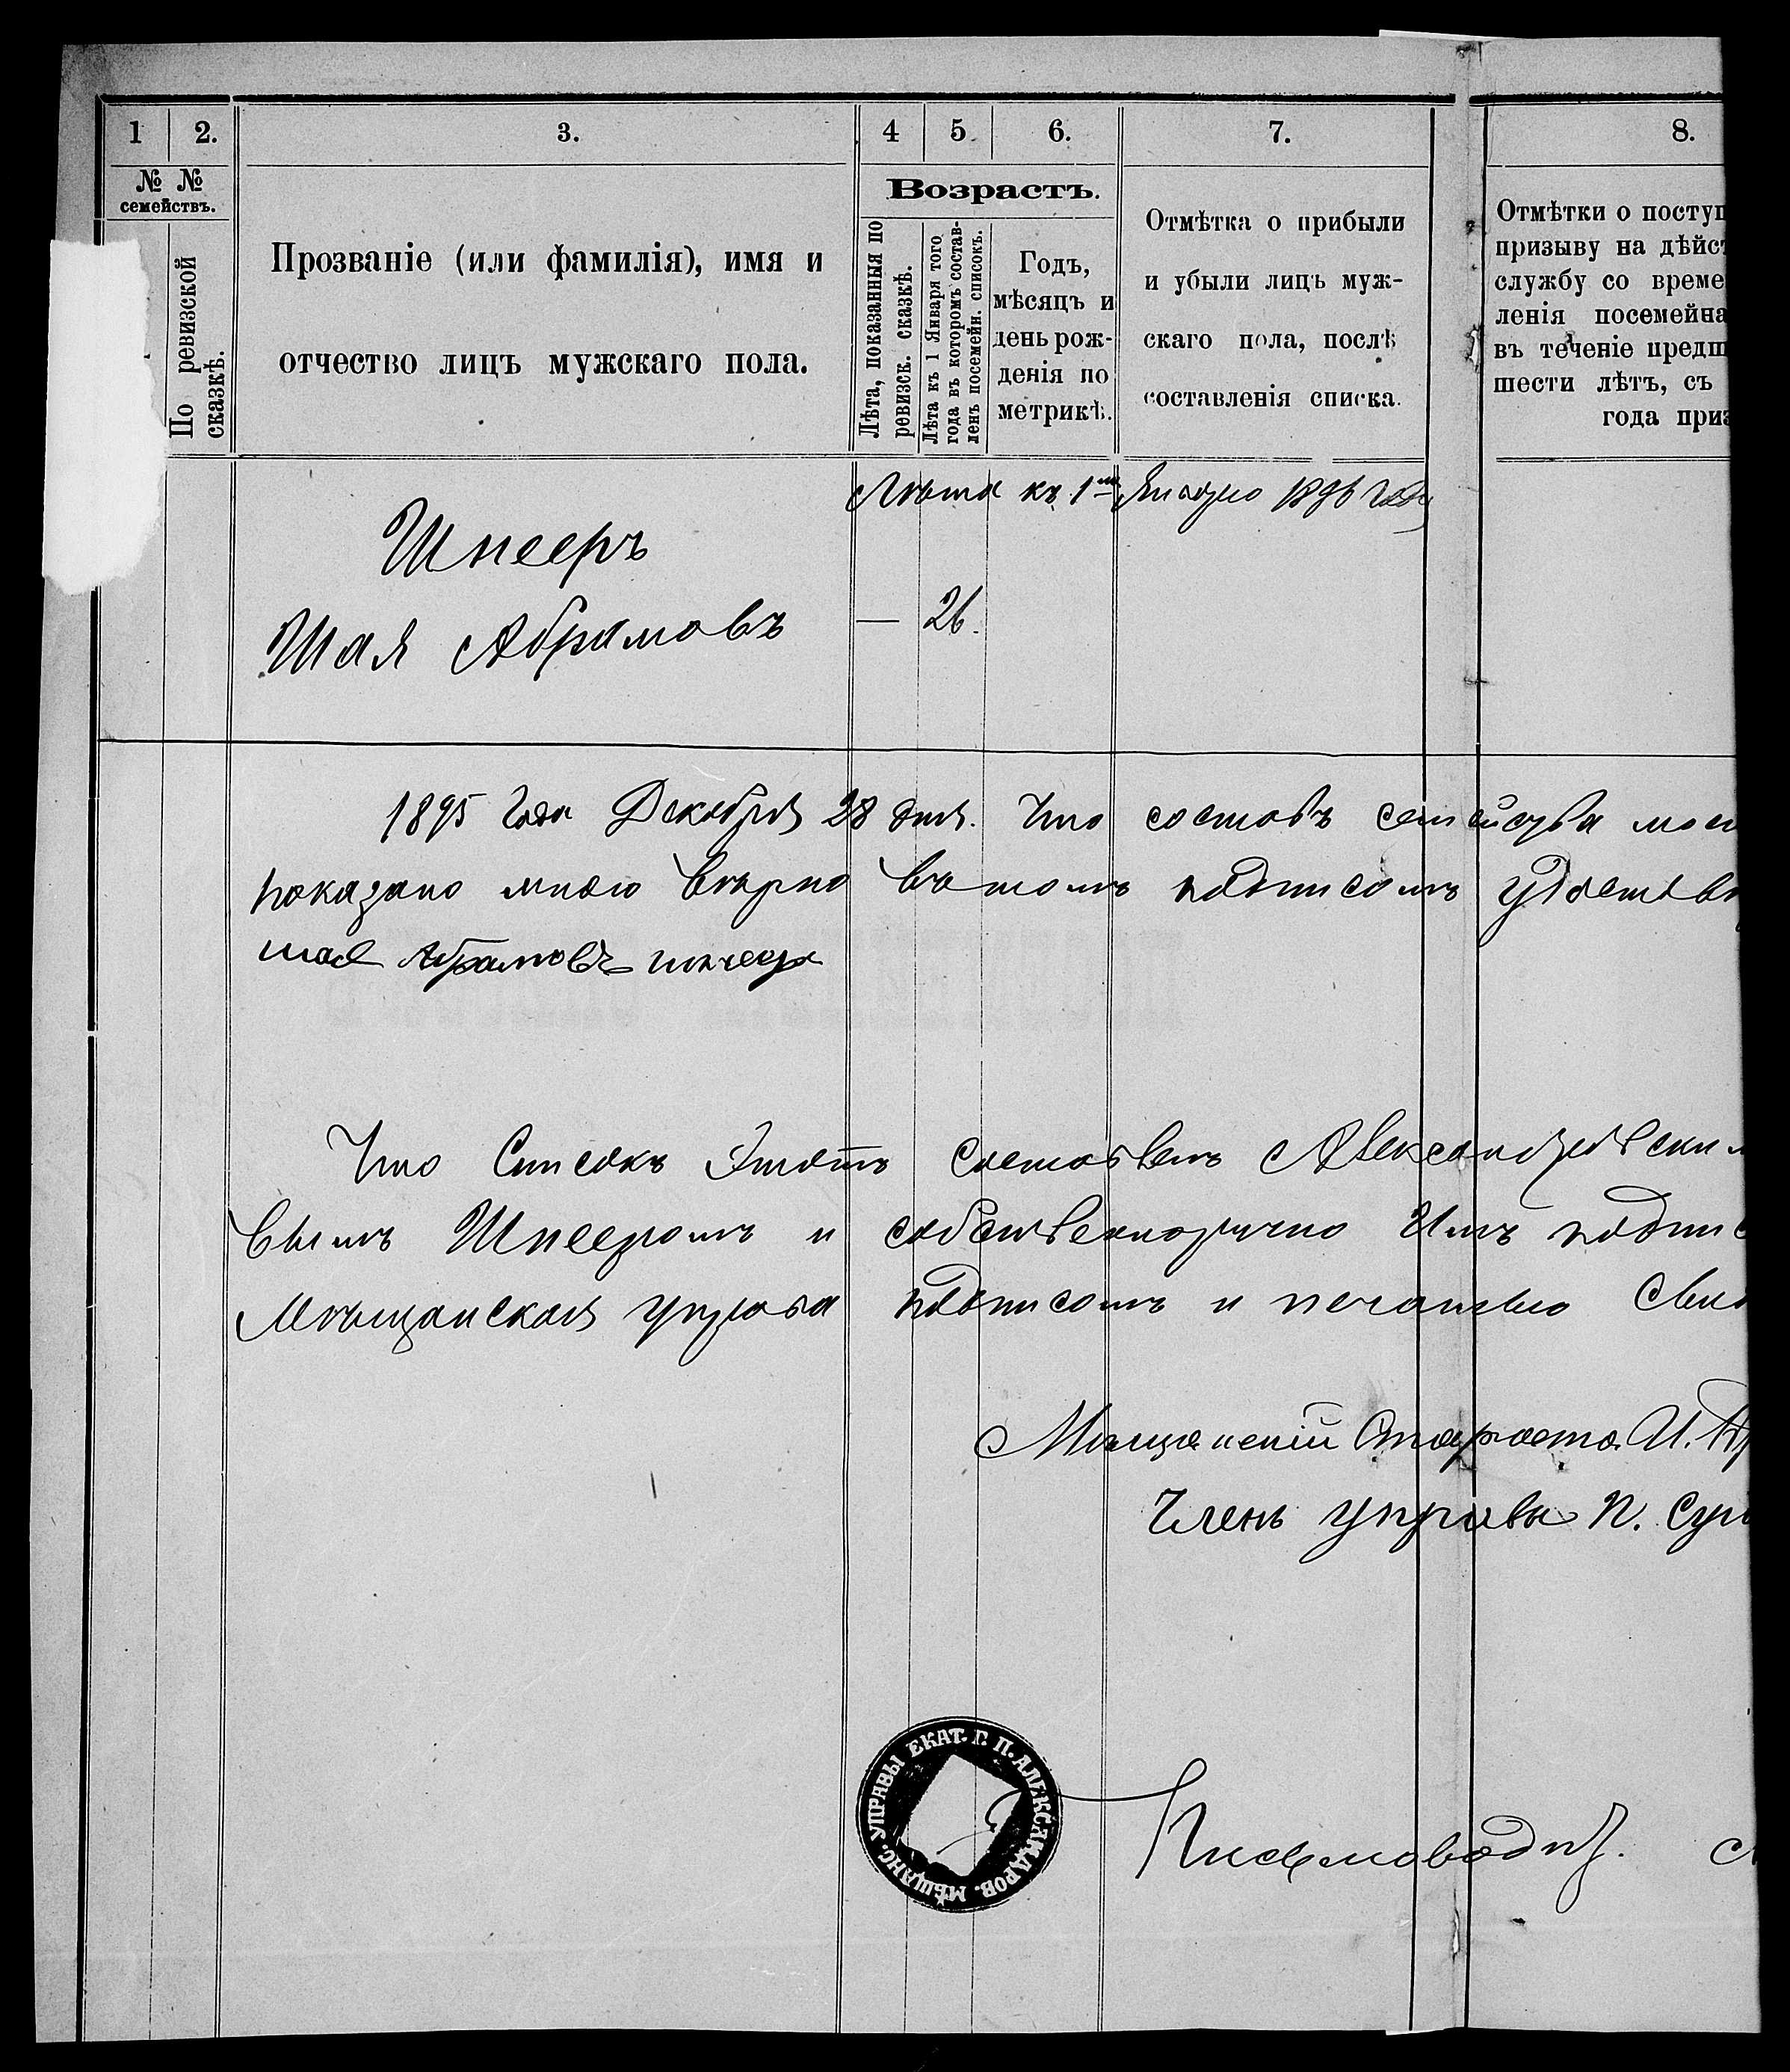 1 2. 3. 4 5 6. 7. 8.
№ №
семействъ.
По ревизской
сказкѣ.
Прозваніе (или фамилія), имя и
отчество лицъ мужскаго пола.
Возрастъ.
Лѣта, показанныя по
ревизск. сказкѣ.
Лѣта къ 1 Января того
года въ которомъ состав-
ленъ посемейн. списокъ.
Годъ,
мѣсяцъ и
день рож-
денія по
метрикѣ.
Отмѣтка о прибыли
и убыли лицъ муж-
скаго пола, послѣ
составленія списка.
Отмѣтки о поступ
призыву на дѣйст
службу со време
ленія посемейна
въ теченіе предш
шести лѣтъ, съ
года приз
Лѣта къ 1му Января 1896 года
Шнееръ
Шая Абрамовъ — 26.
1895 Года Декабря 28 дня. Что составъ семейства мое
показано мною вѣрно въ томъ подписомъ удостовѣ
шая Абрамовъ шнеер
Что Списокъ Этотъ составленъ Александровским
вымъ Шнееромъ и собственноручно Имъ подпис
Мѣщанская управа подписомъ и печатью Сви
Мѣщанскій Староста И.
Членъ управы П.
МѢЩАНС. УПРАВЫ ЕКАТ. Г. П. АЛЕКСАНДРОВ.
Письмовод